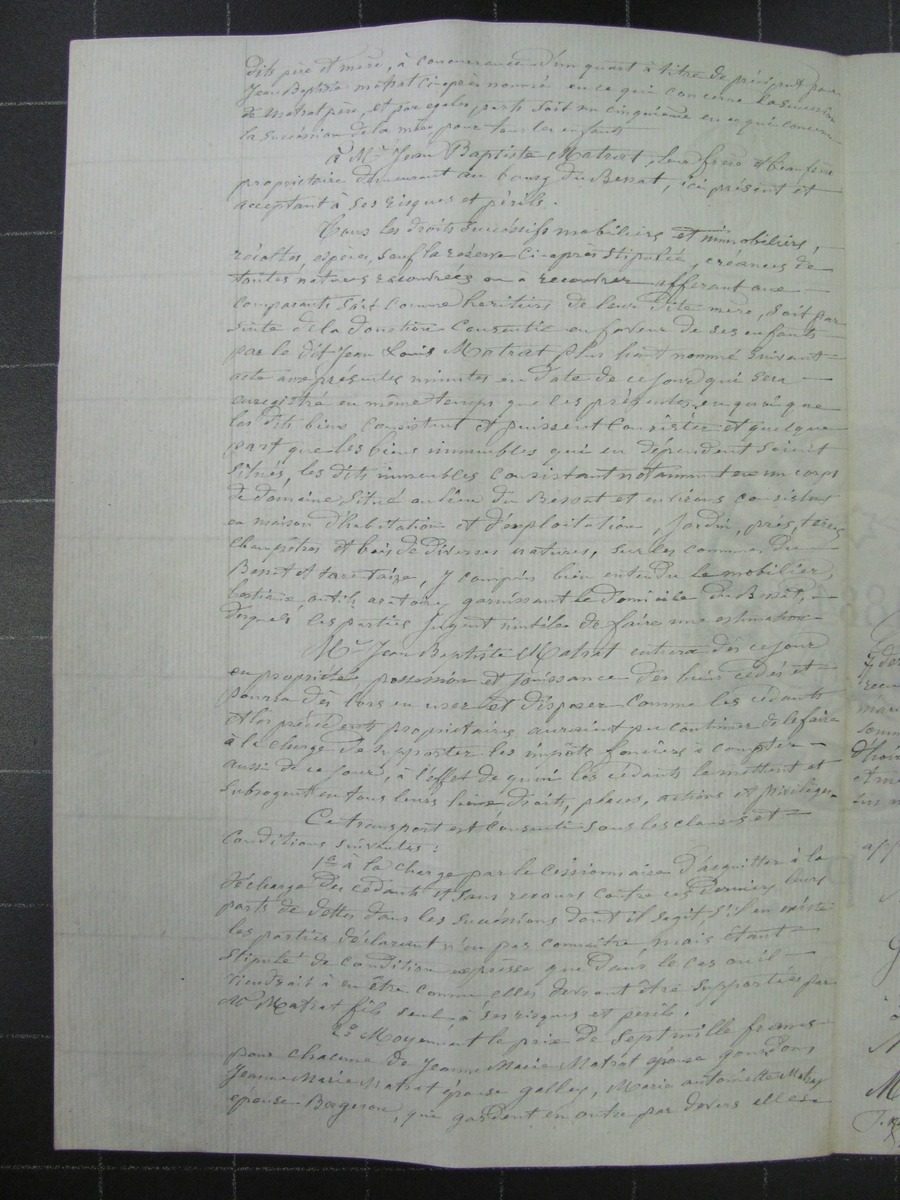 dits père et mère, à concurrence d'un quart à titre de préciput pour
Jean Baptiste Matrat ci-après nommé en ce qui concerne la succession
de Matrat père, et par egales parts soit un cinquième en ce qui concerne
la succession de la mère, pour tous les enfants
à Mr Jean Baptiste Matrat, leur frère et beau frère
propriétaire demeurant au bourg du Bessat, ici présent et
acceptant à ses risques et périls.
Tous les droits successifs mobiliers et immobiliers,
récoltes, espèces, sauf la réserve ci-après stipulée, créances de
toutes natures recouvrées ou à recouvrer afferant aux
comparants soit comme heritiers de leur dite mère, soit par
suite de la donation consentie en faveur de ses enfants
par le dit Jean Louis Matrat plus haut nommé suivant
acte aux présentes minutes en date de ce jour qui sera
enregistré en même temps que les présentes, en quoi que
les dits biens consistent et puissent consister et quelque
part que les biens immeubles qui en dépendent soient
situés, les dits immeubles consistant notamment en un corps
de domaine situé au lieu du Bessat et environs consistant
en maison d'habitation et d'exploitation, jardin, prés, terres
champêtres et bois de diverses natures, sur les communes du
Bessat et tarentaize, y compris bien entendu le mobilier,
bestiaux outils aratoires garnissant le domicile du Bessat,
desquels les parties jugent inutile de faire une estimation
Mr Jean Baptiste Matrat entrera dès ce jour
en propriété, possession et jouissance des biens cédés et
pourra dès lors en user et disposer comme les cédants
et les précédents propriétaires auraient pu continuer de le faire
à la charge de supporter les impôts fonciers à compter
aussi de ce jour, à l'effet de quoi les cédants le mettent et
subrogent en tous leurs lieux droits, places, actions et privilèges
Ce transport est consenti sous les clauses et
conditions suivantes:
1e à la charge par le cessionnaire d'acquitter à la
décharge des cédants et sans recours contre ces derniers leurs
parts de dettes dans les successions dont il sagit s'il en existe
les parties déclarent n'en pas connaître, mais étant
stipulé de condition expresse que dans le cas où il
viendrait à en être connu elles devront être supportées par
Mr Matrat fils seul à ses risques et perils.
2o Moyennant le prix de Sept mille francs
pour chacune de Jeanne Marie Matrat epouse
Jeanne Marie Matrat épouse galley, Marie antoinette Matrat
epouse Bergeron, qui gardent en outre par devers elles